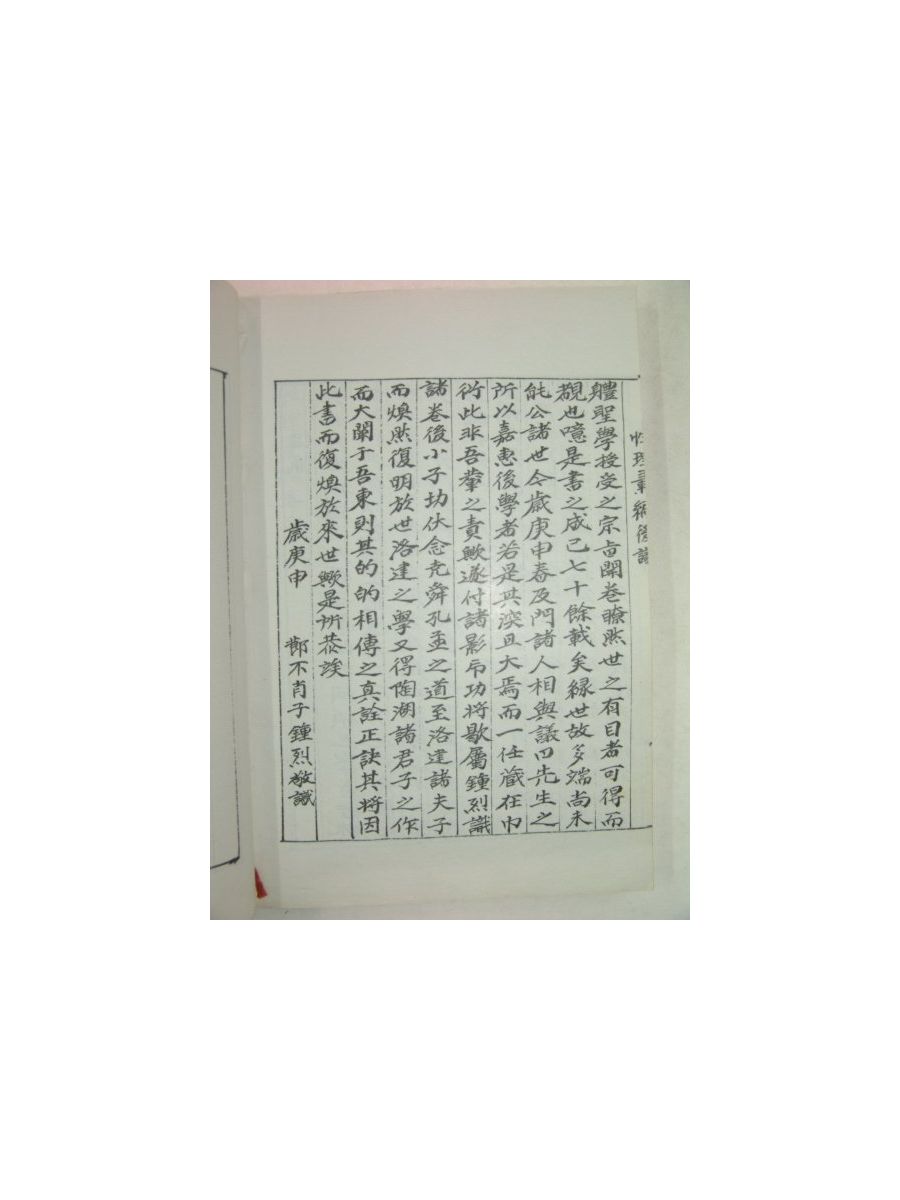 性理彙編後識
軆聖學授受之宗旨開卷瞭然世之有目者可得而
覩也噫是書之成已七十餘載矣緣世故多端尚未
能公諸世今歲庚申春及門諸人相與議曰先生之
所以嘉惠後學者若是其深且大焉而一任藏在巾
衍此非吾輩之責歟遂付諸影印功將歇屬鍾烈識
諸卷後小子功伏念堯舜孔孟之道至洛建諸夫子
而煥然復明於世洛建之學又得陶湖諸君子之作
而大闡于吾東則其的的相傳之真詮正訣其將因
此書而復煥於來世歟是所恭竢
歲庚申 不肖子鍾烈敬識